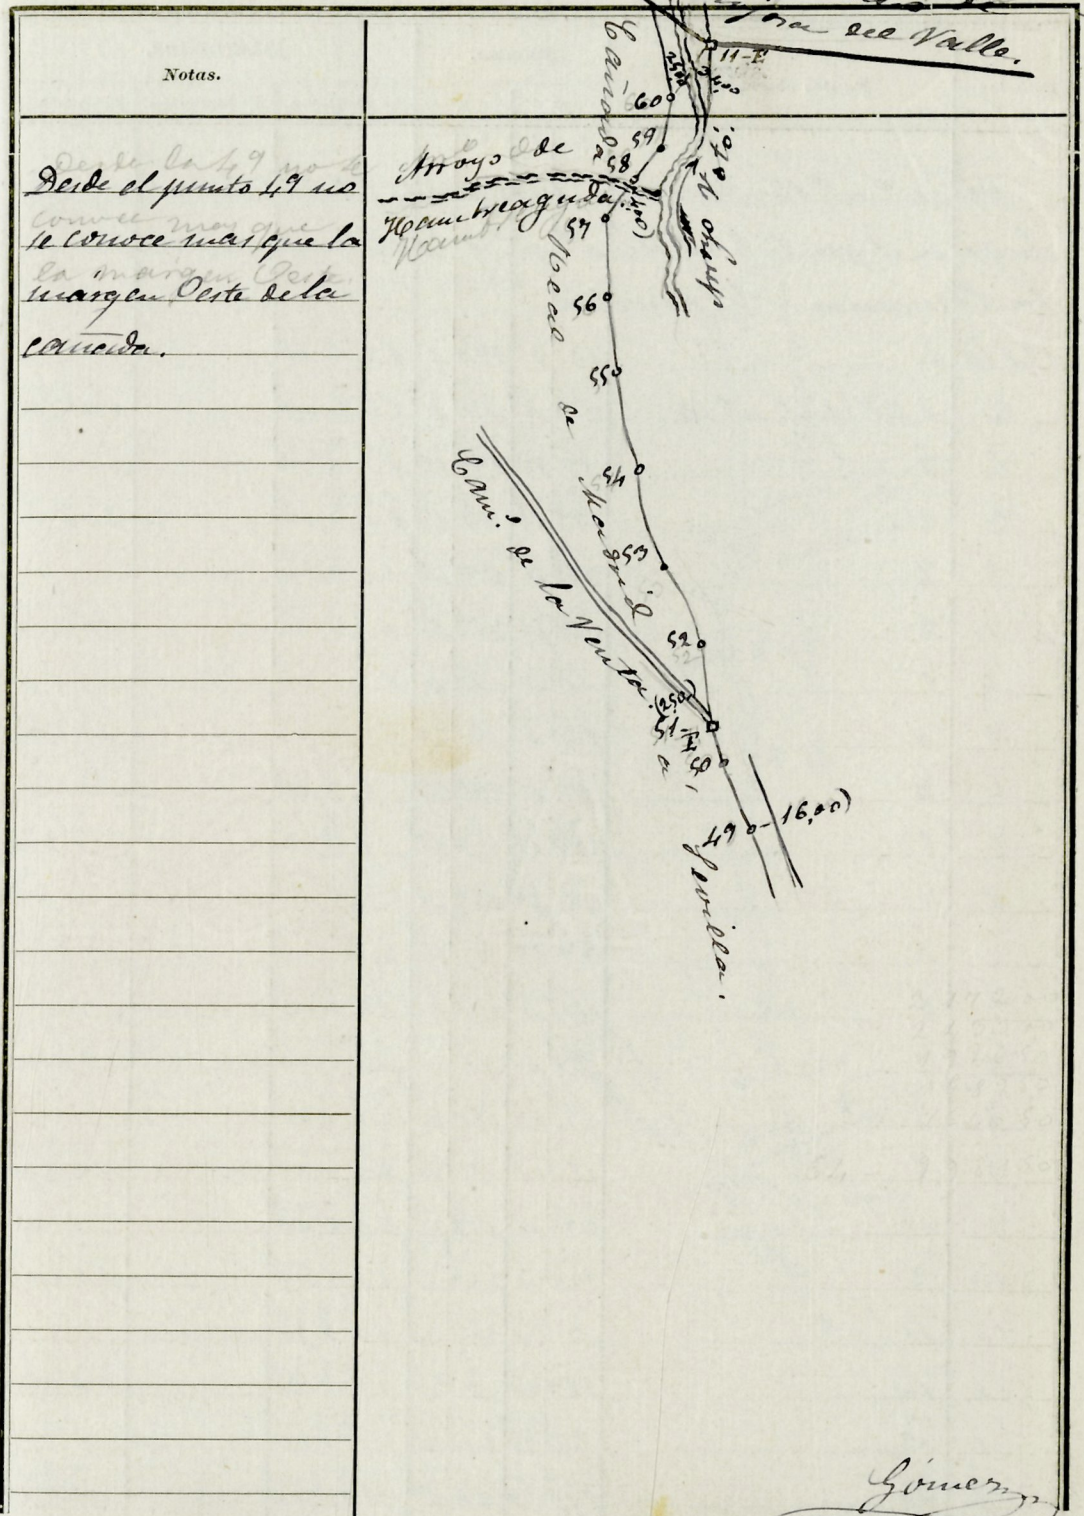 Notas.
Desde el punto 49 no
se conoce mas que la
márgen Oeste de la
cañada.
del Valle.
11-E
2,500
60
59
58
Arroyo de
Hambreaguda.
57
56
55
54
53
52
(250)
51-E
50
49 - 16,00)
Cañada Real de Madrid a Sevilla.
Cam.º de la Venta.
Gómez